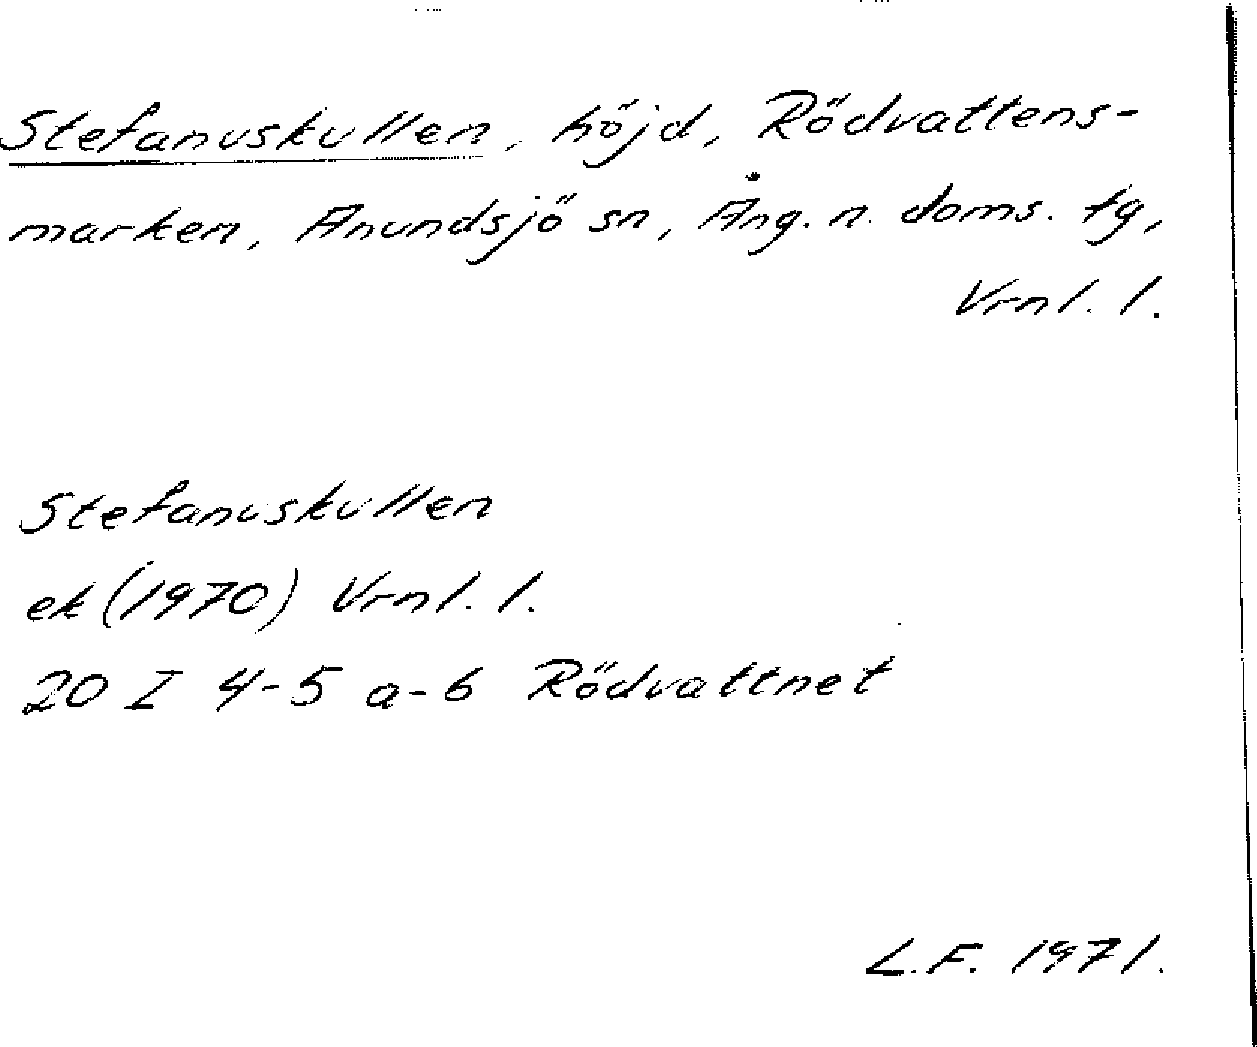 Stefanuskullen, höjd, Rödvattens-
marken, Anundsjö sn, Ång. n. doms. tg,
Vrnl. l.
Stefanuskullen
ek (1970) Vrnl. l.
20 I 4-5 a-b Rödvattnet
L.F. 1971.